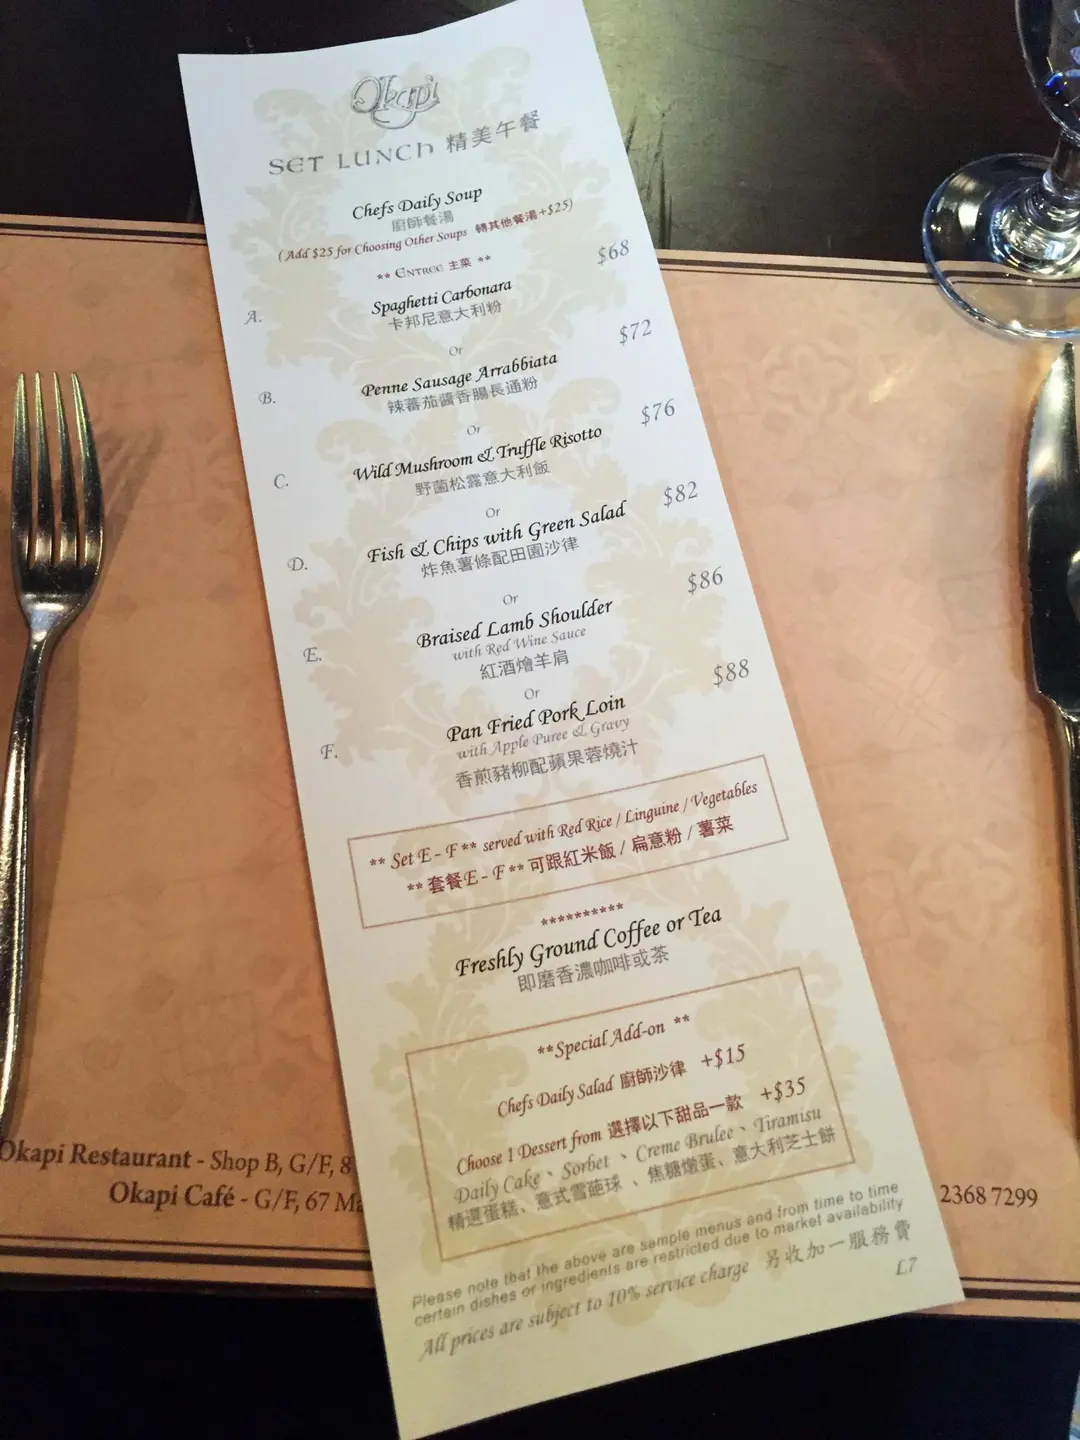 Okapi
SET LUNCH 精美午餐
Chefs Daily Soup
廚師餐湯
(Add $25 for Choosing Other Soups 轉其他餐湯+$25)
** ENTREE 主菜 **
$68
A. Spaghetti Carbonara
卡邦尼意大利粉
Or
$72
B. Penne Sausage Arrabbiata
辣蕃茄醬香腸長通粉
Or
$76
C. Wild Mushroom & Truffle Risotto
野菌松露意大利飯
Or
$82
D. Fish & Chips with Green Salad
炸魚薯條配田園沙律
Or
$86
E. Braised Lamb Shoulder
with Red Wine Sauce
紅酒燴羊肩
Or
$88
F. Pan Fried Pork Loin
with Apple Puree & Gravy
香煎豬柳配蘋果蓉燒汁
** Set E - F ** served with Red Rice / Linguine / Vegetables
** 套餐E - F ** 可跟紅米飯 / 扁意粉 / 薯菜
**********
Freshly Ground Coffee or Tea
即磨香濃咖啡或茶
**Special Add-on **
Chefs Daily Salad 廚師沙律 +$15
Choose 1 Dessert from 選擇以下甜品一款 +$35
Daily Cake、Sorbet、Creme Brulee、Tiramisu
精選蛋糕、意式雪葩球、焦糖燉蛋、意大利芝士餅
Please note that the above are sample menus and from time to time
certain dishes or ingredients are restricted due to market availability
All prices are subject to 10% service charge 另收加一服務費
L7
Okapi Restaurant - Shop B, G/F, 8
Okapi Café - G/F, 67 Ma
2368 7299